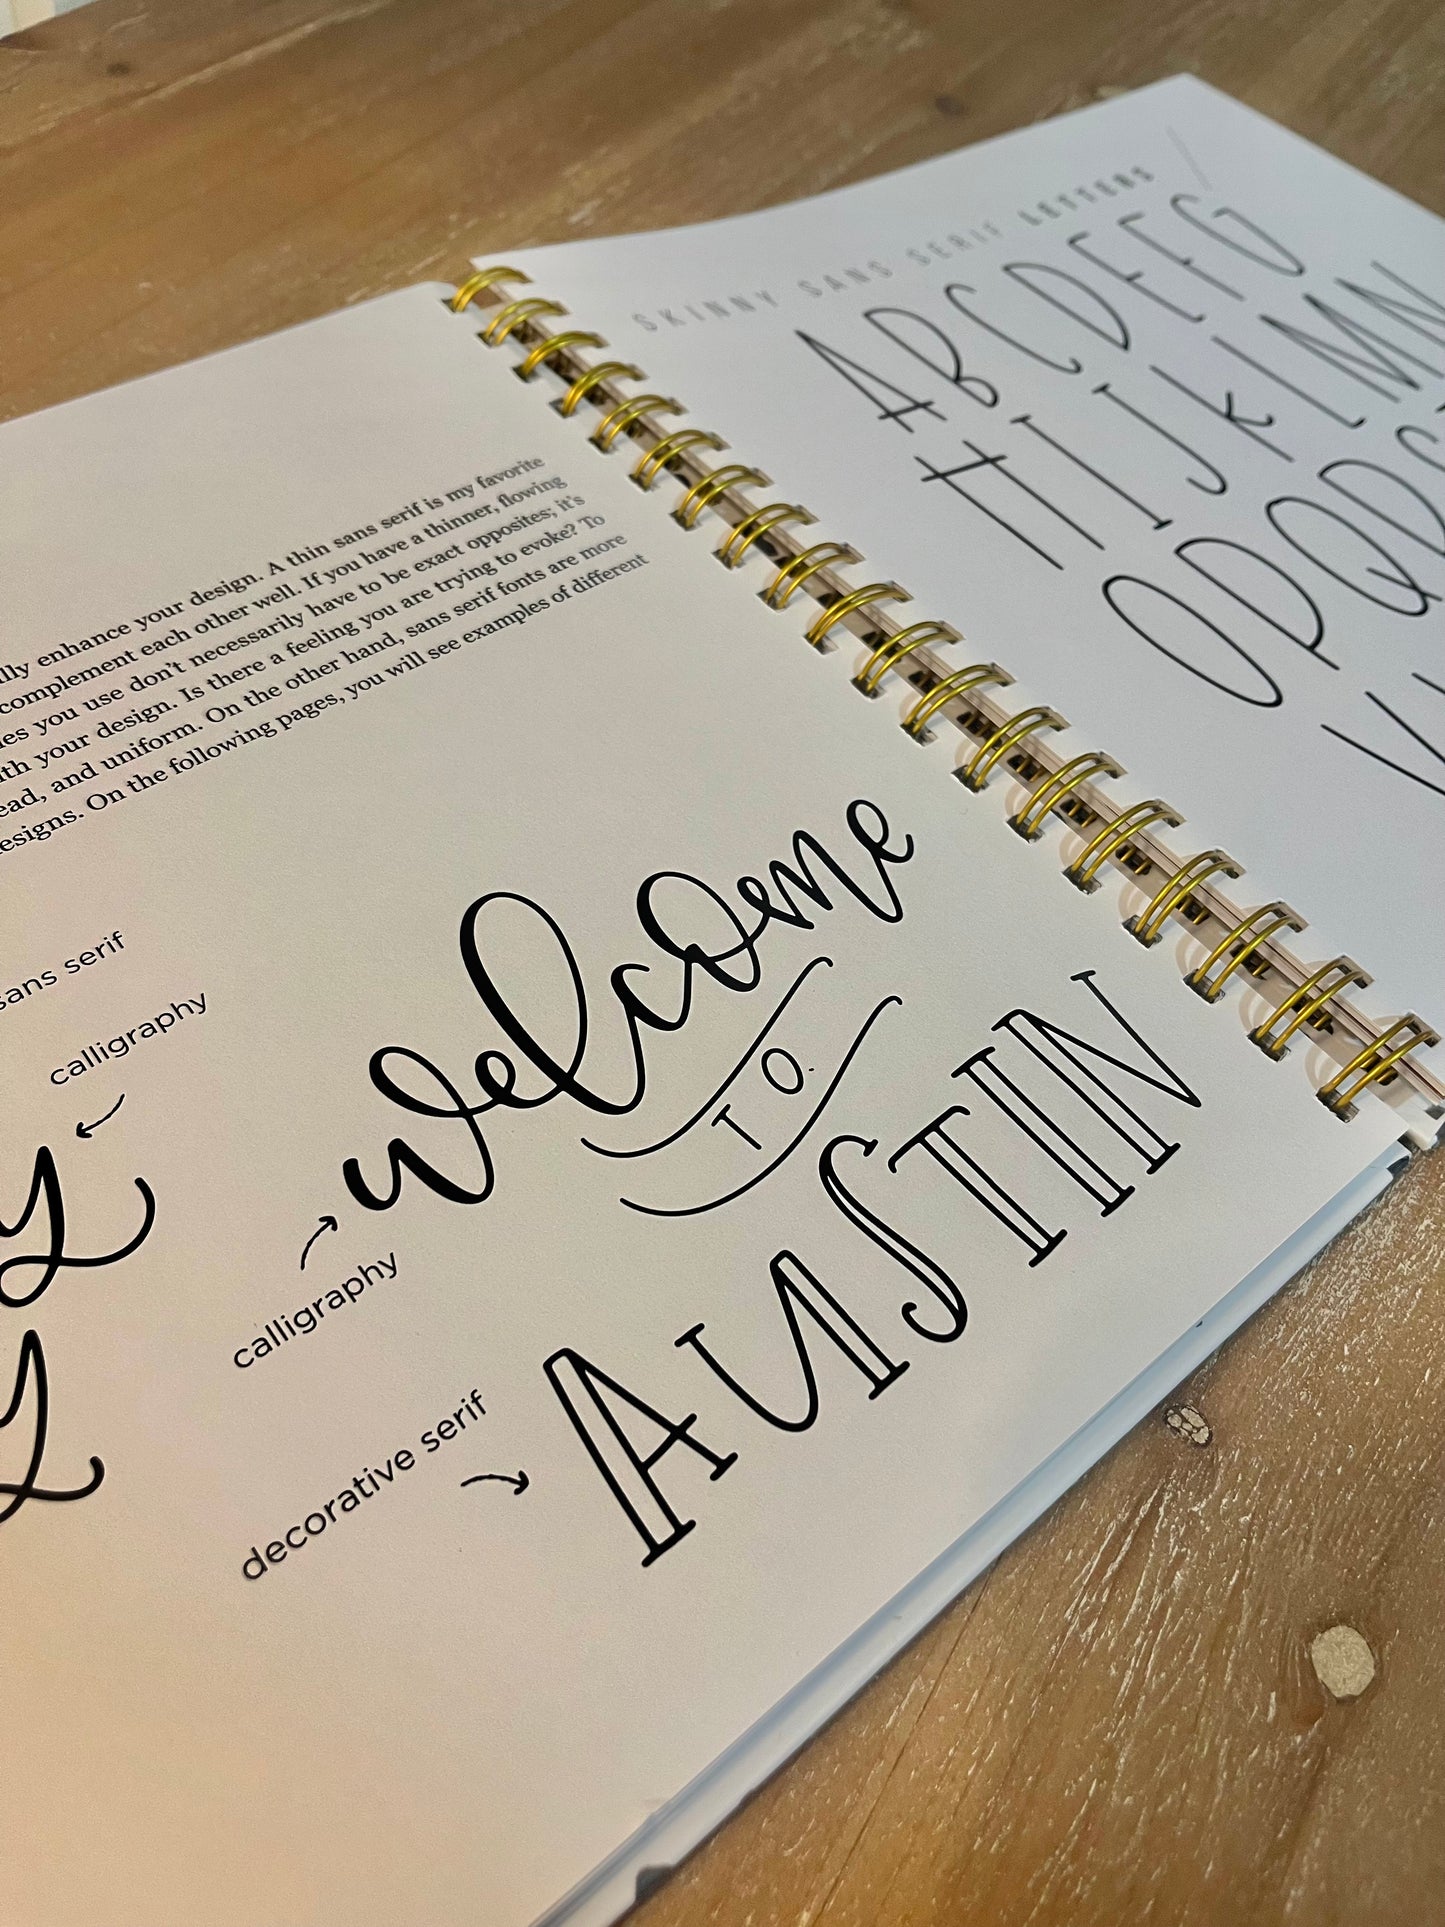 enhance your design. A thin sans serif is my favorite
complement each other well. If you have a thinner, flowing
you use don't necessarily have to be exact opposites; it's
your design. Is there a feeling you are trying to evoke? To
and uniform. On the other hand, sans serif fonts are more
On the following pages, you will see examples of different
sans serif
calligraphy
welcome
TO
AUSTIN
calligraphy
decorative serif
SKINNY SANS SERIF LETTERS
A B C D E F G
H I J K L M N
O P Q